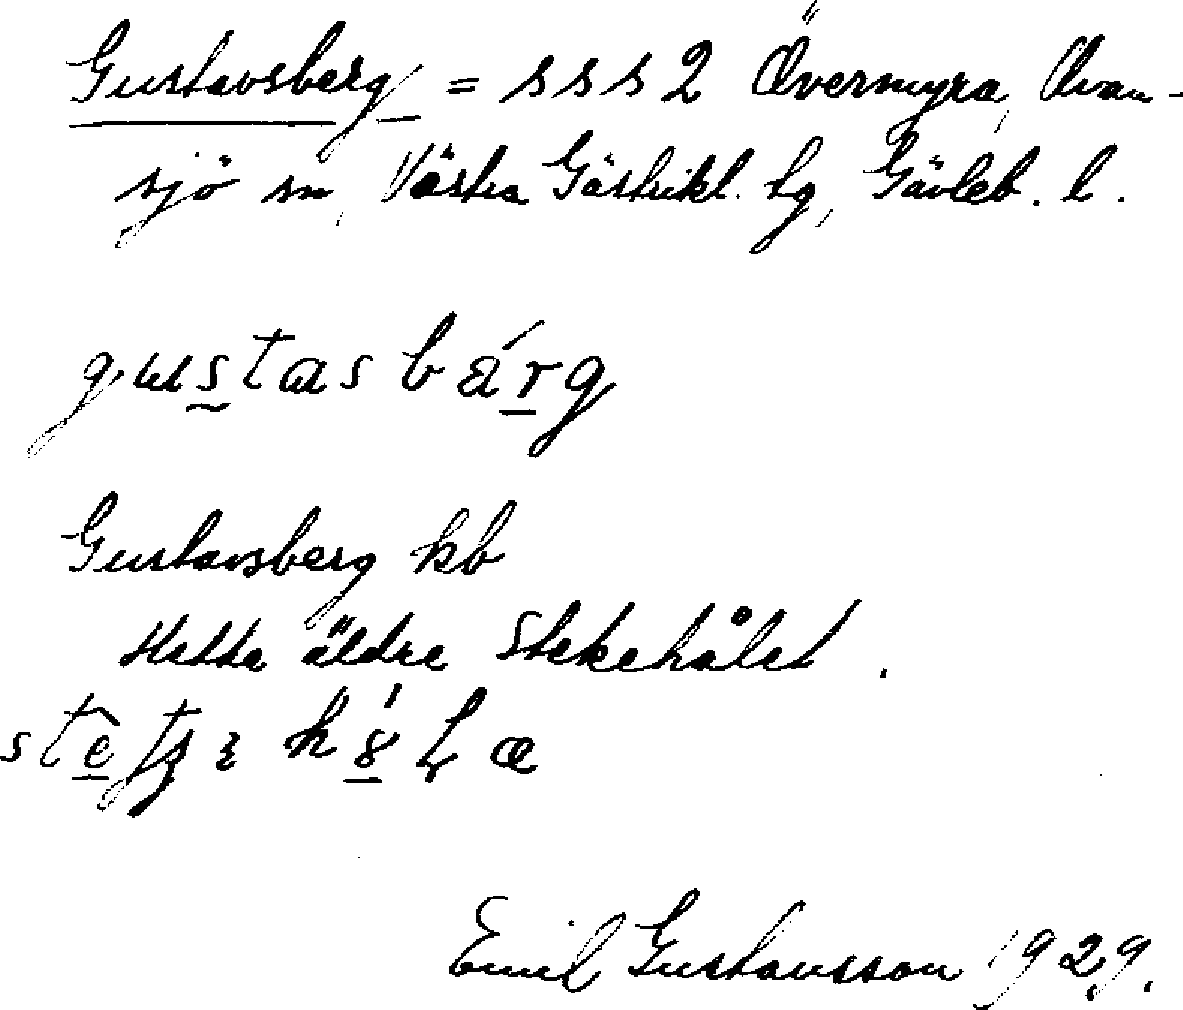 Gustavsberg = s s s 2 Övermyra, Ovan-
sjö sn, Västra Gästrikl. tg, Gävleb. l.
gustasbárg
Gustavsberg kb
Hette äldre Stekehålet.
Emil Gustavsson 1929.